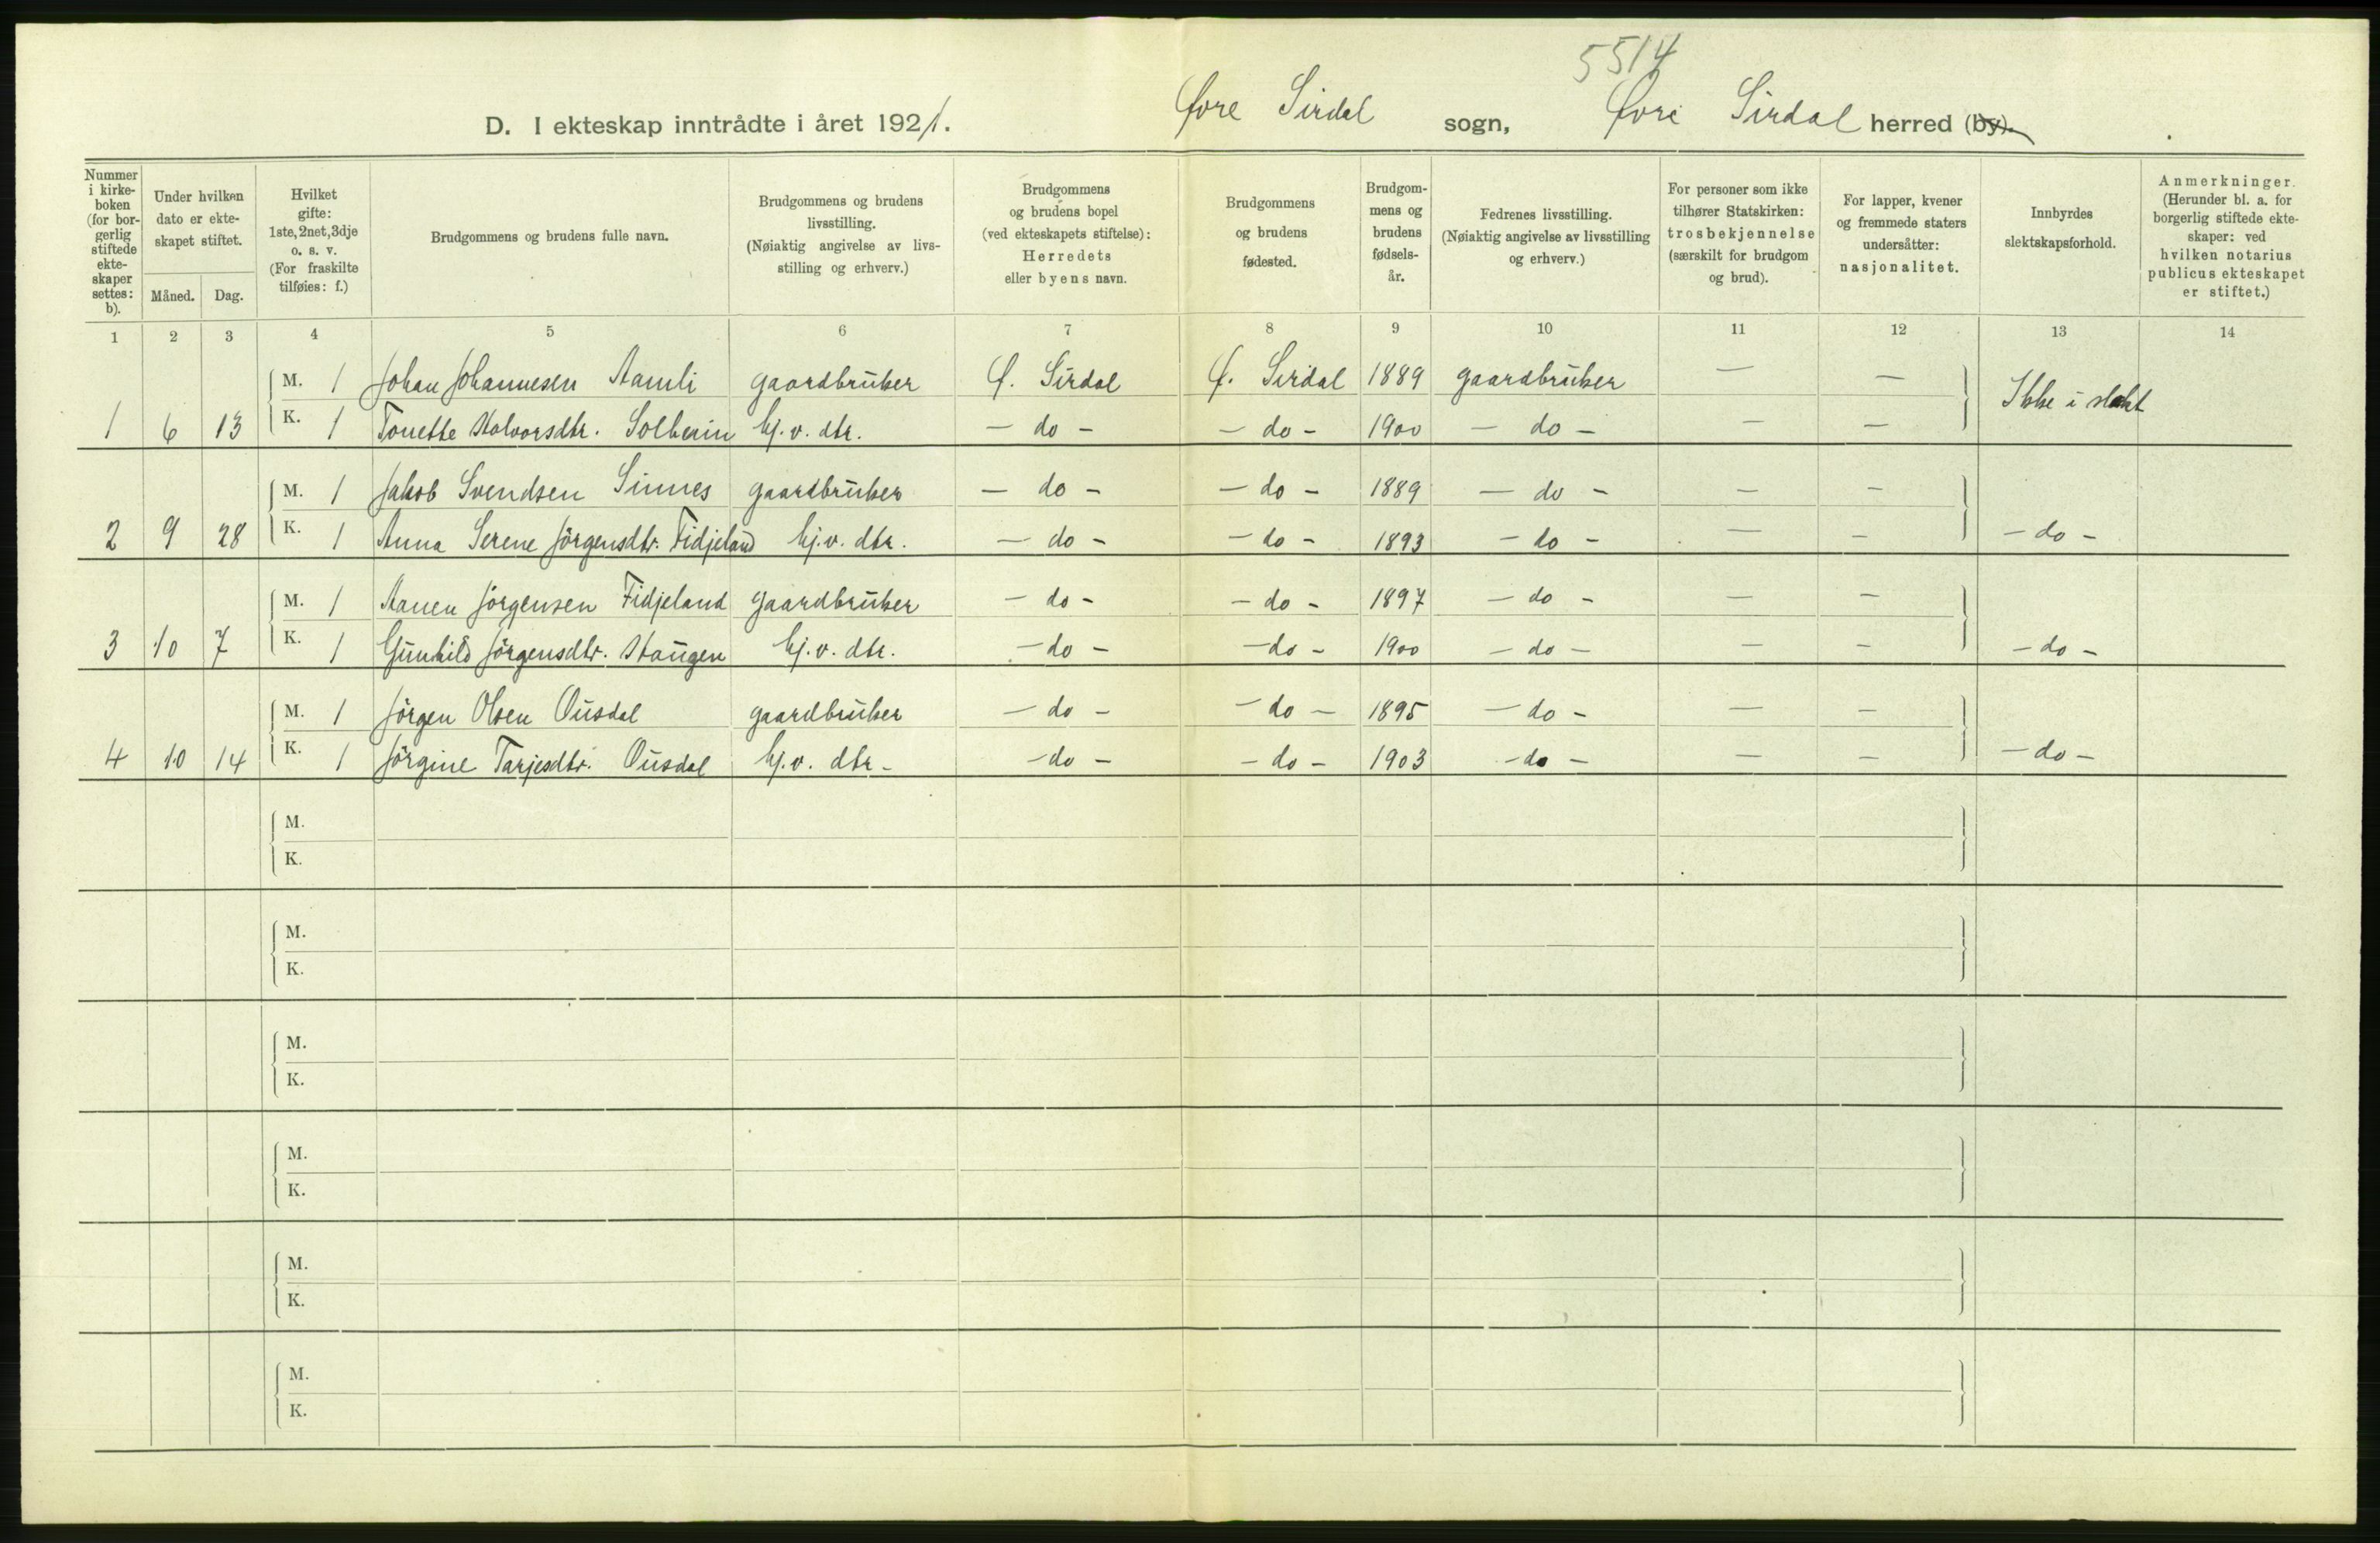 5514
D. I ekteskap inntrådte i året 1921. Øvre Sirdal sogn, Øvre Sirdal herred (by).
Nummer i kirke- boken (for bor- gerlig stiftede ekte- skaper settes: b).
Under hvilken dato er ekte- skapet stiftet.
Måned. Dag.
Hvilket gifte: 1ste, 2net, 3dje o. s. v. (For fraskilte tilføies: f.)
Brudgommens og brudens fulle navn.
Brudgommens og brudens livsstilling. (Nøiaktig angivelse av livs- stilling og erhverv.)
Brudgommens og brudens bopel (ved ekteskapets stiftelse): Herredets eller byens navn.
Brudgommens og brudens fødested.
Brudgom- mens og brudens fødsels- år.
Fedrenes livsstilling. (Nøiaktig angivelse av livsstilling og erhverv.)
For personer som ikke tilhører Statskirken: trosbekjennelse (særskilt for brudgom og brud).
For lapper, kvener og fremmede staters undersåtter: nasjonalitet.
Innbyrdes slektskapsforhold.
Anmerkninger. (Herunder bl. a. for borgerlig stiftede ekte- skaper: ved hvilken notarius publicus ekteskapet er stiftet.)
1 2 3 4 5 6 7 8 9 10 11 12 13 14
M. 1 Johan Johannesen Aamli gaardbruker Ø. Sirdal Ø. Sirdal 1889 gaardbruker — — Ikke i slekt
1 6 13 K. 1 Tonette Halvorsdtr. hj.v. dtr. — do — — do — 1900 — do — — —
M. 1 Jakob Svendsen Sinnes gaardbruker — do — — do — 1889 — do — — —
2 9 28 K. 1 Anna Serene Jörgensdtr. Fidjeland hj.v. dtr. — do — — do — 1893 — do — — — — do —
M. 1 Aanen Jörgensen Fidjeland gaardbruker — do — — do — 1897 — do — — —
3 10 7 K. 1 Gunhild Jörgensdtr. Haugen hj.v. dtr. — do — — do — 1900 — do — — — — do —
M. 1 Jörgen Olsen Ousdal gaardbruker — do — — do — 1895 — do — — —
4 10 14 K. 1 Jörgine Tarjesdtr. Ousdal hj.v. dtr. — do — — do — 1903 — do — — — — do —
M.
K.
M.
K.
M.
K.
M.
K.
M.
K.
M.
K.